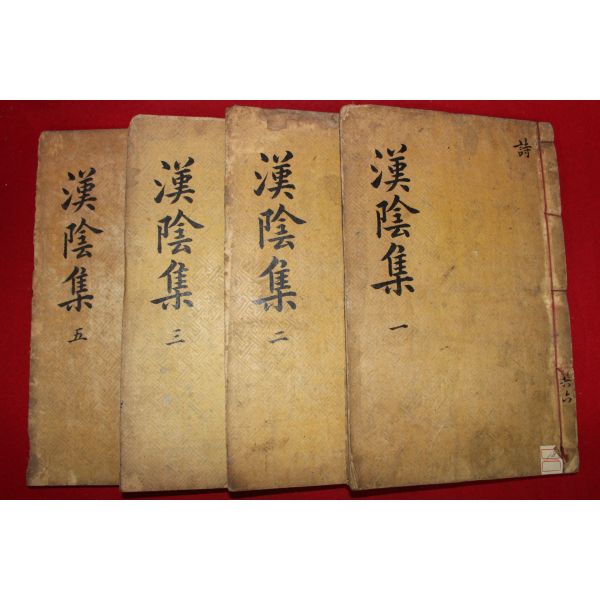 詩
漢陰集
一
共六
漢陰集
二
漢陰集
三
漢陰集
五